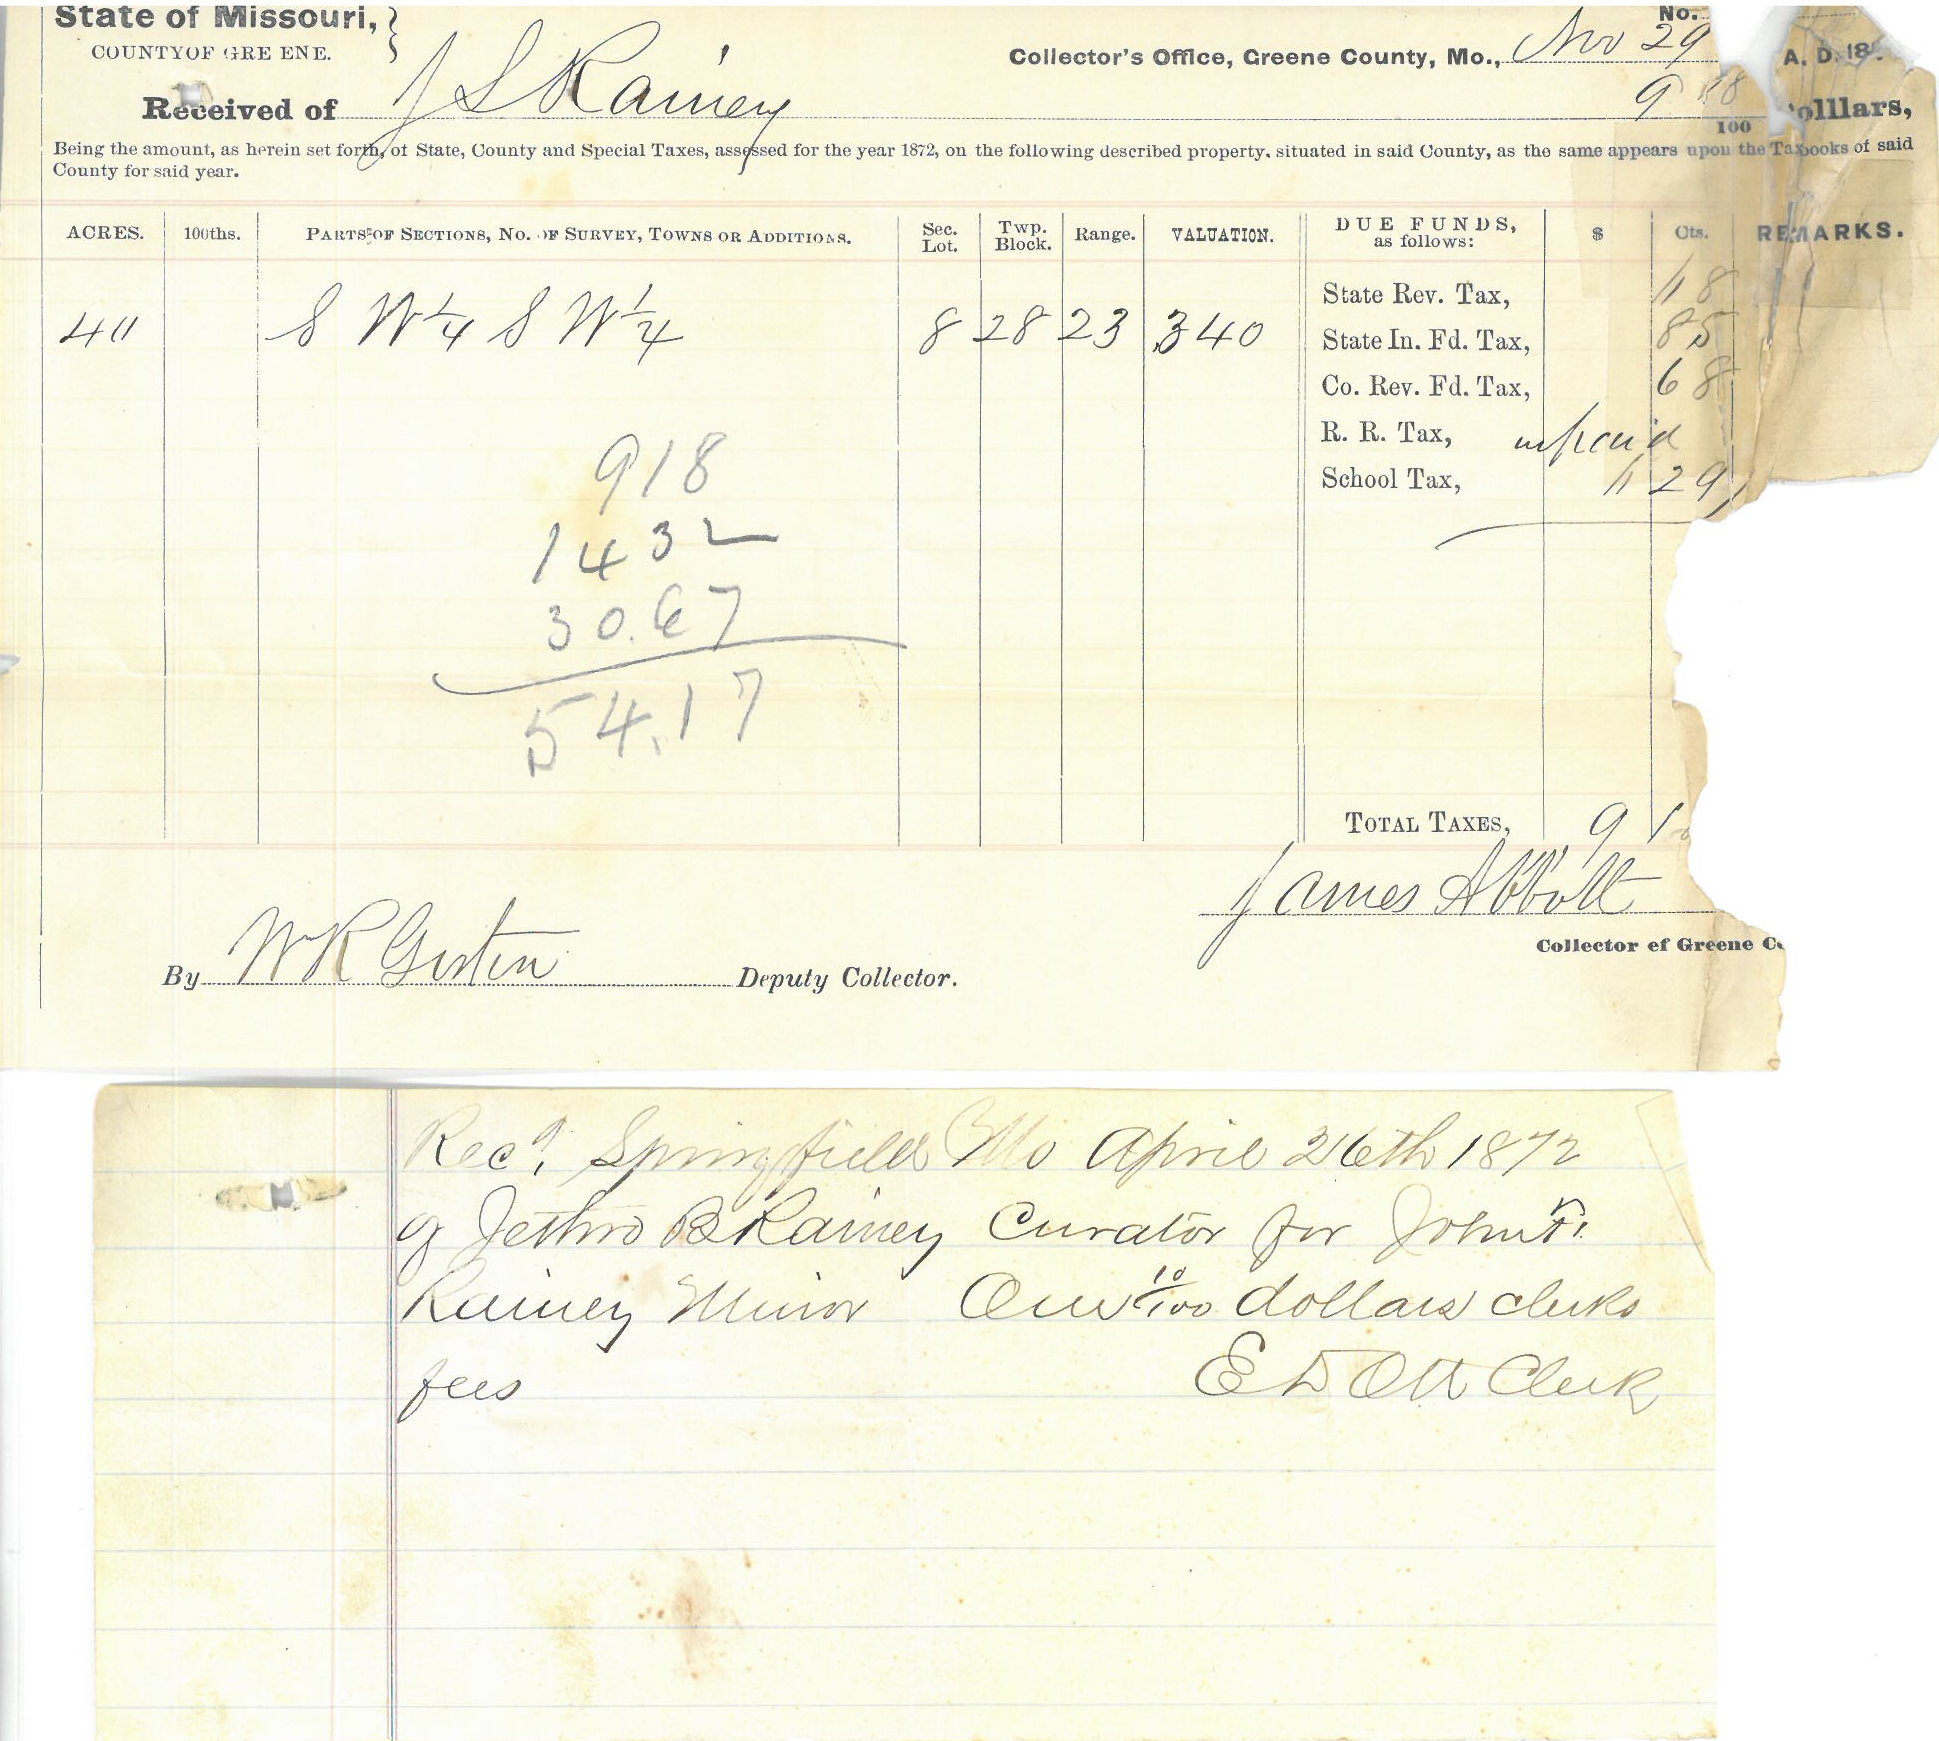 State of Missouri,
COUNTY OF GREENE.
No.
Collector's Office, Greene County, Mo., Nov 29 A. D. 18
Received of J S Rainey 9 18/100 Dolllars,
Being the amount, as herein set forth, of State, County and Special Taxes, assessed for the year 1872, on the following described property, situated in said County, as the same appears upon the Taxbooks of said
County for said year.
ACRES. 100ths. PARTS OF SECTIONS, No. OF SURVEY, TOWNS OR ADDITIONS. Sec. Lot. Twp. Block. Range. VALUATION. DUE FUNDS, as follows: $ Cts. REMARKS.
State Rev. Tax, 68
40 S W 1/4 S W 1/4 8 28 23 340
State In. Fd. Tax, 85
Co. Rev. Fd. Tax, 68
R. R. Tax, unpaid
School Tax, 29
918
1432
30.67
54.17
TOTAL TAXES, 9 1
James Abbott
Collector of Greene Co
By W R Deputy Collector.
Recd. Springfield Mo April 26th 1872
of Jethro B Rainey Curator for John
Rainey Minor One 10/100 dollars clerks
fees
E D Ott Clerk